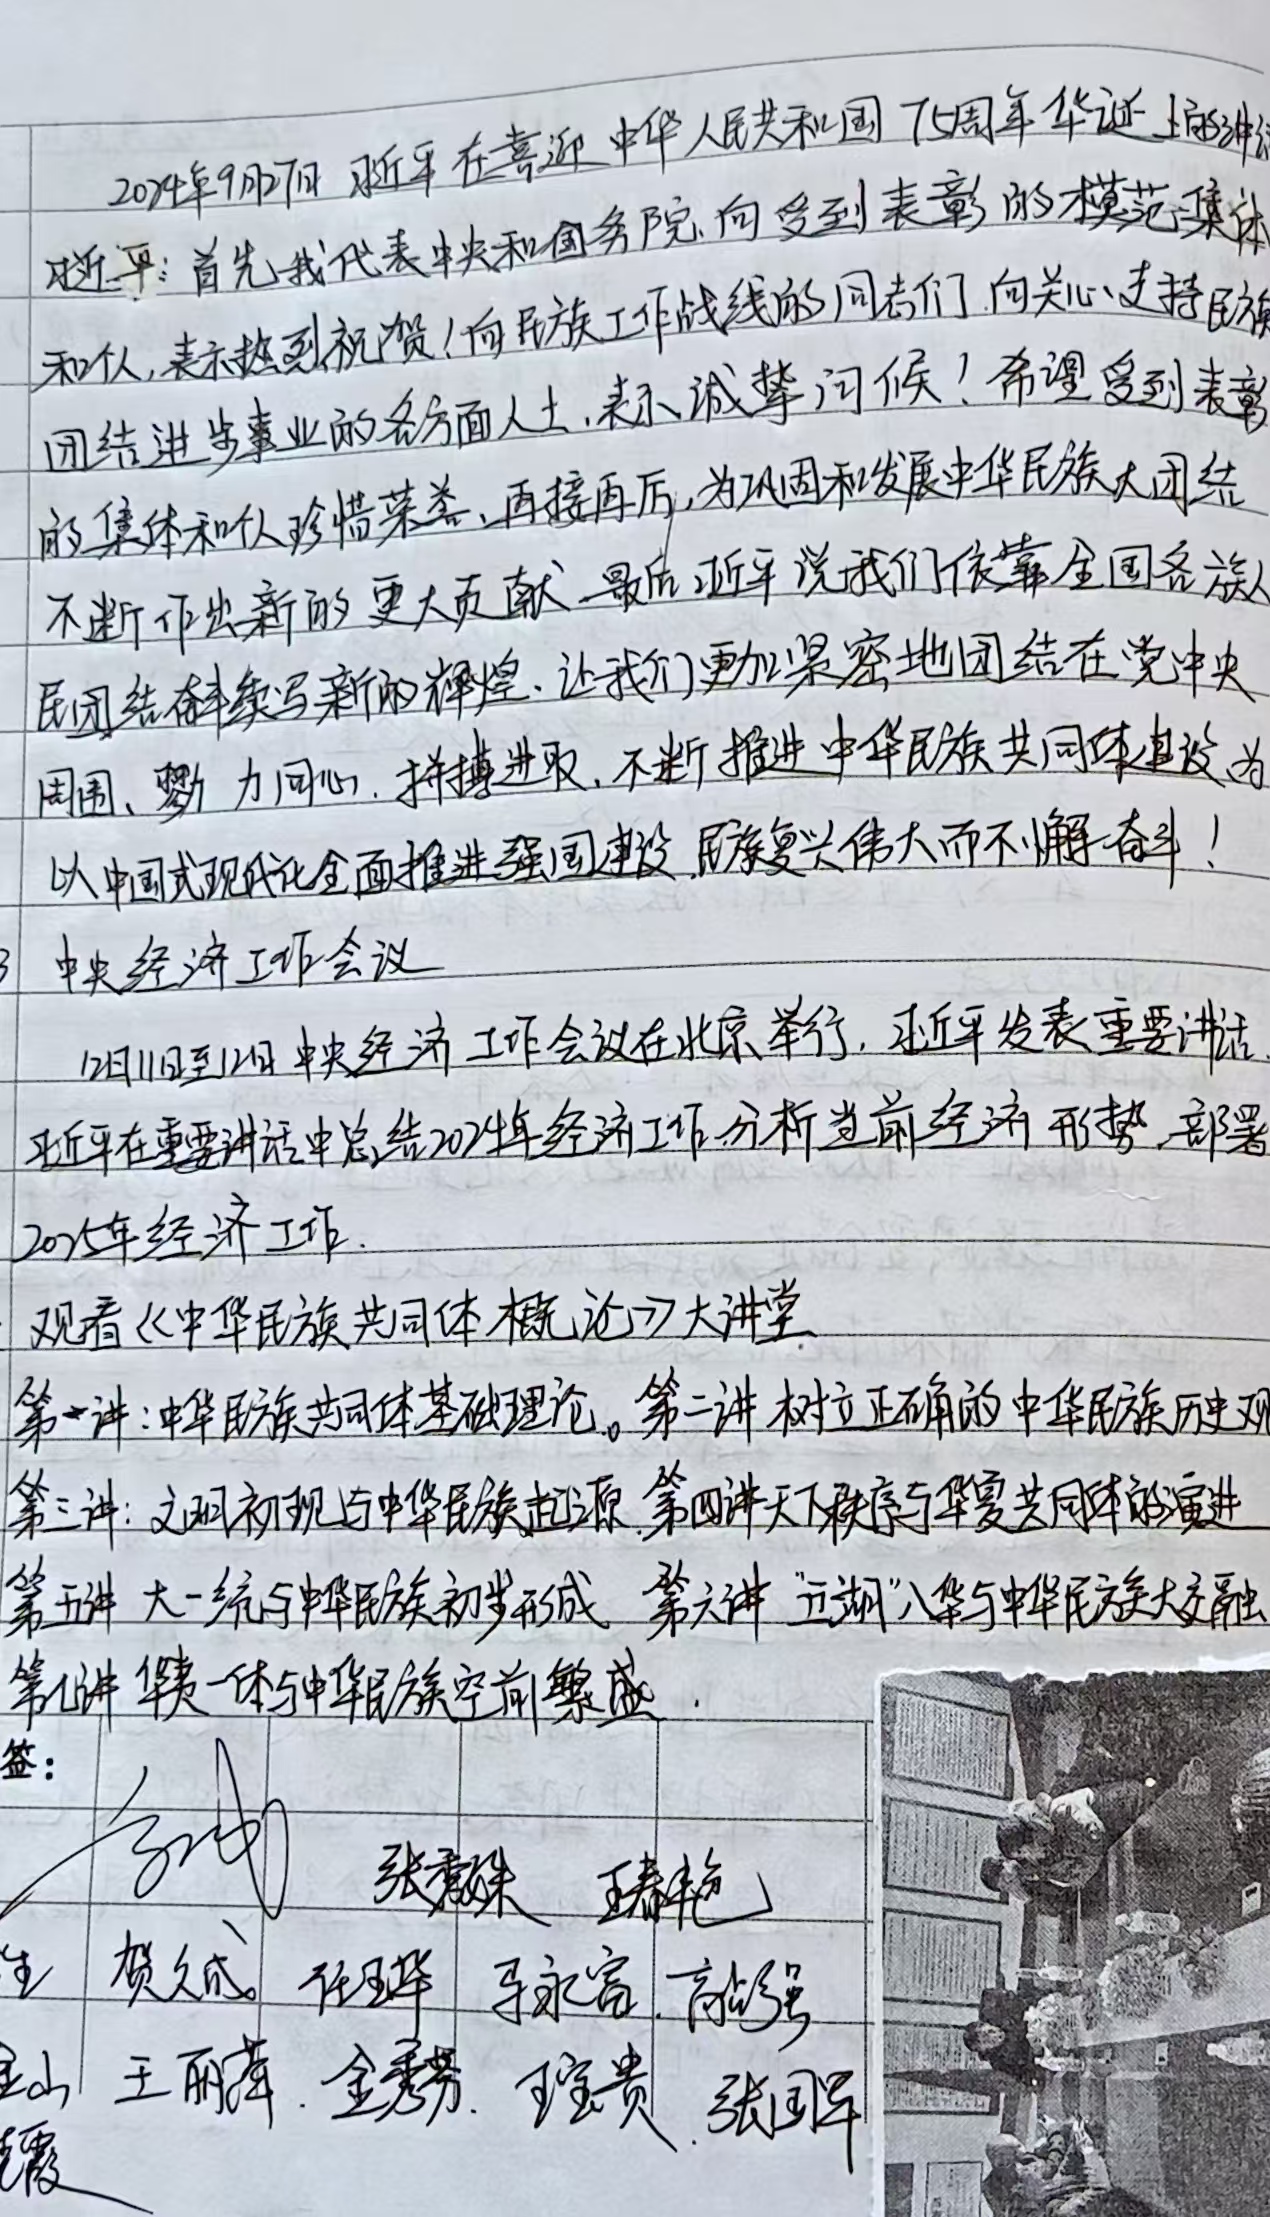 2024年9月27日 习近平在喜迎中华人民共和国75周年华诞上的讲
习近平：首先我代表中央和国务院、向受到表彰的模范集体
和个人，表示热烈祝贺！向民族工作战线的同志们、向关心、支持民族
团结进步事业的各方面人士、表示诚挚问候！希望受到表彰
的集体和个人珍惜荣誉、再接再厉，为巩固和发展中华民族大团结
不断作出新的更大贡献 最后习近平说我们依靠全国各族人
民团结奋斗续写新的辉煌、让我们更加紧密地团结在党中央
周围、勠力同心、拼搏进取、不断推进中华民族共同体建设、为
以中国式现代化全面推进强国建设、民族复兴伟大而不懈奋斗！
3 中央经济工作会议
12月11日至12日中央经济工作会议在北京举行，习近平发表重要讲话、
习近平在重要讲话中总结2024年经济工作、分析当前经济形势、部署
2025年经济工作．
观看《中华民族共同体概论》大讲堂．
第一讲：中华民族共同体基础理论。第二讲 树立正确的中华民族历史观
第三讲：文明初现与中华民族起源、第四讲天下秩序与华夏共同体的演进
第五讲 大一统与中华民族初步形成 第六讲 “五湖”入华与中华民族大交融
第七讲 华夷一体与中华民族空前繁盛．
签：
张秀珠 王春艳
生 贺文成 任玉华 马永富 高占强
金山 王丽萍 金秀芳 王宝贵 张国军
霞